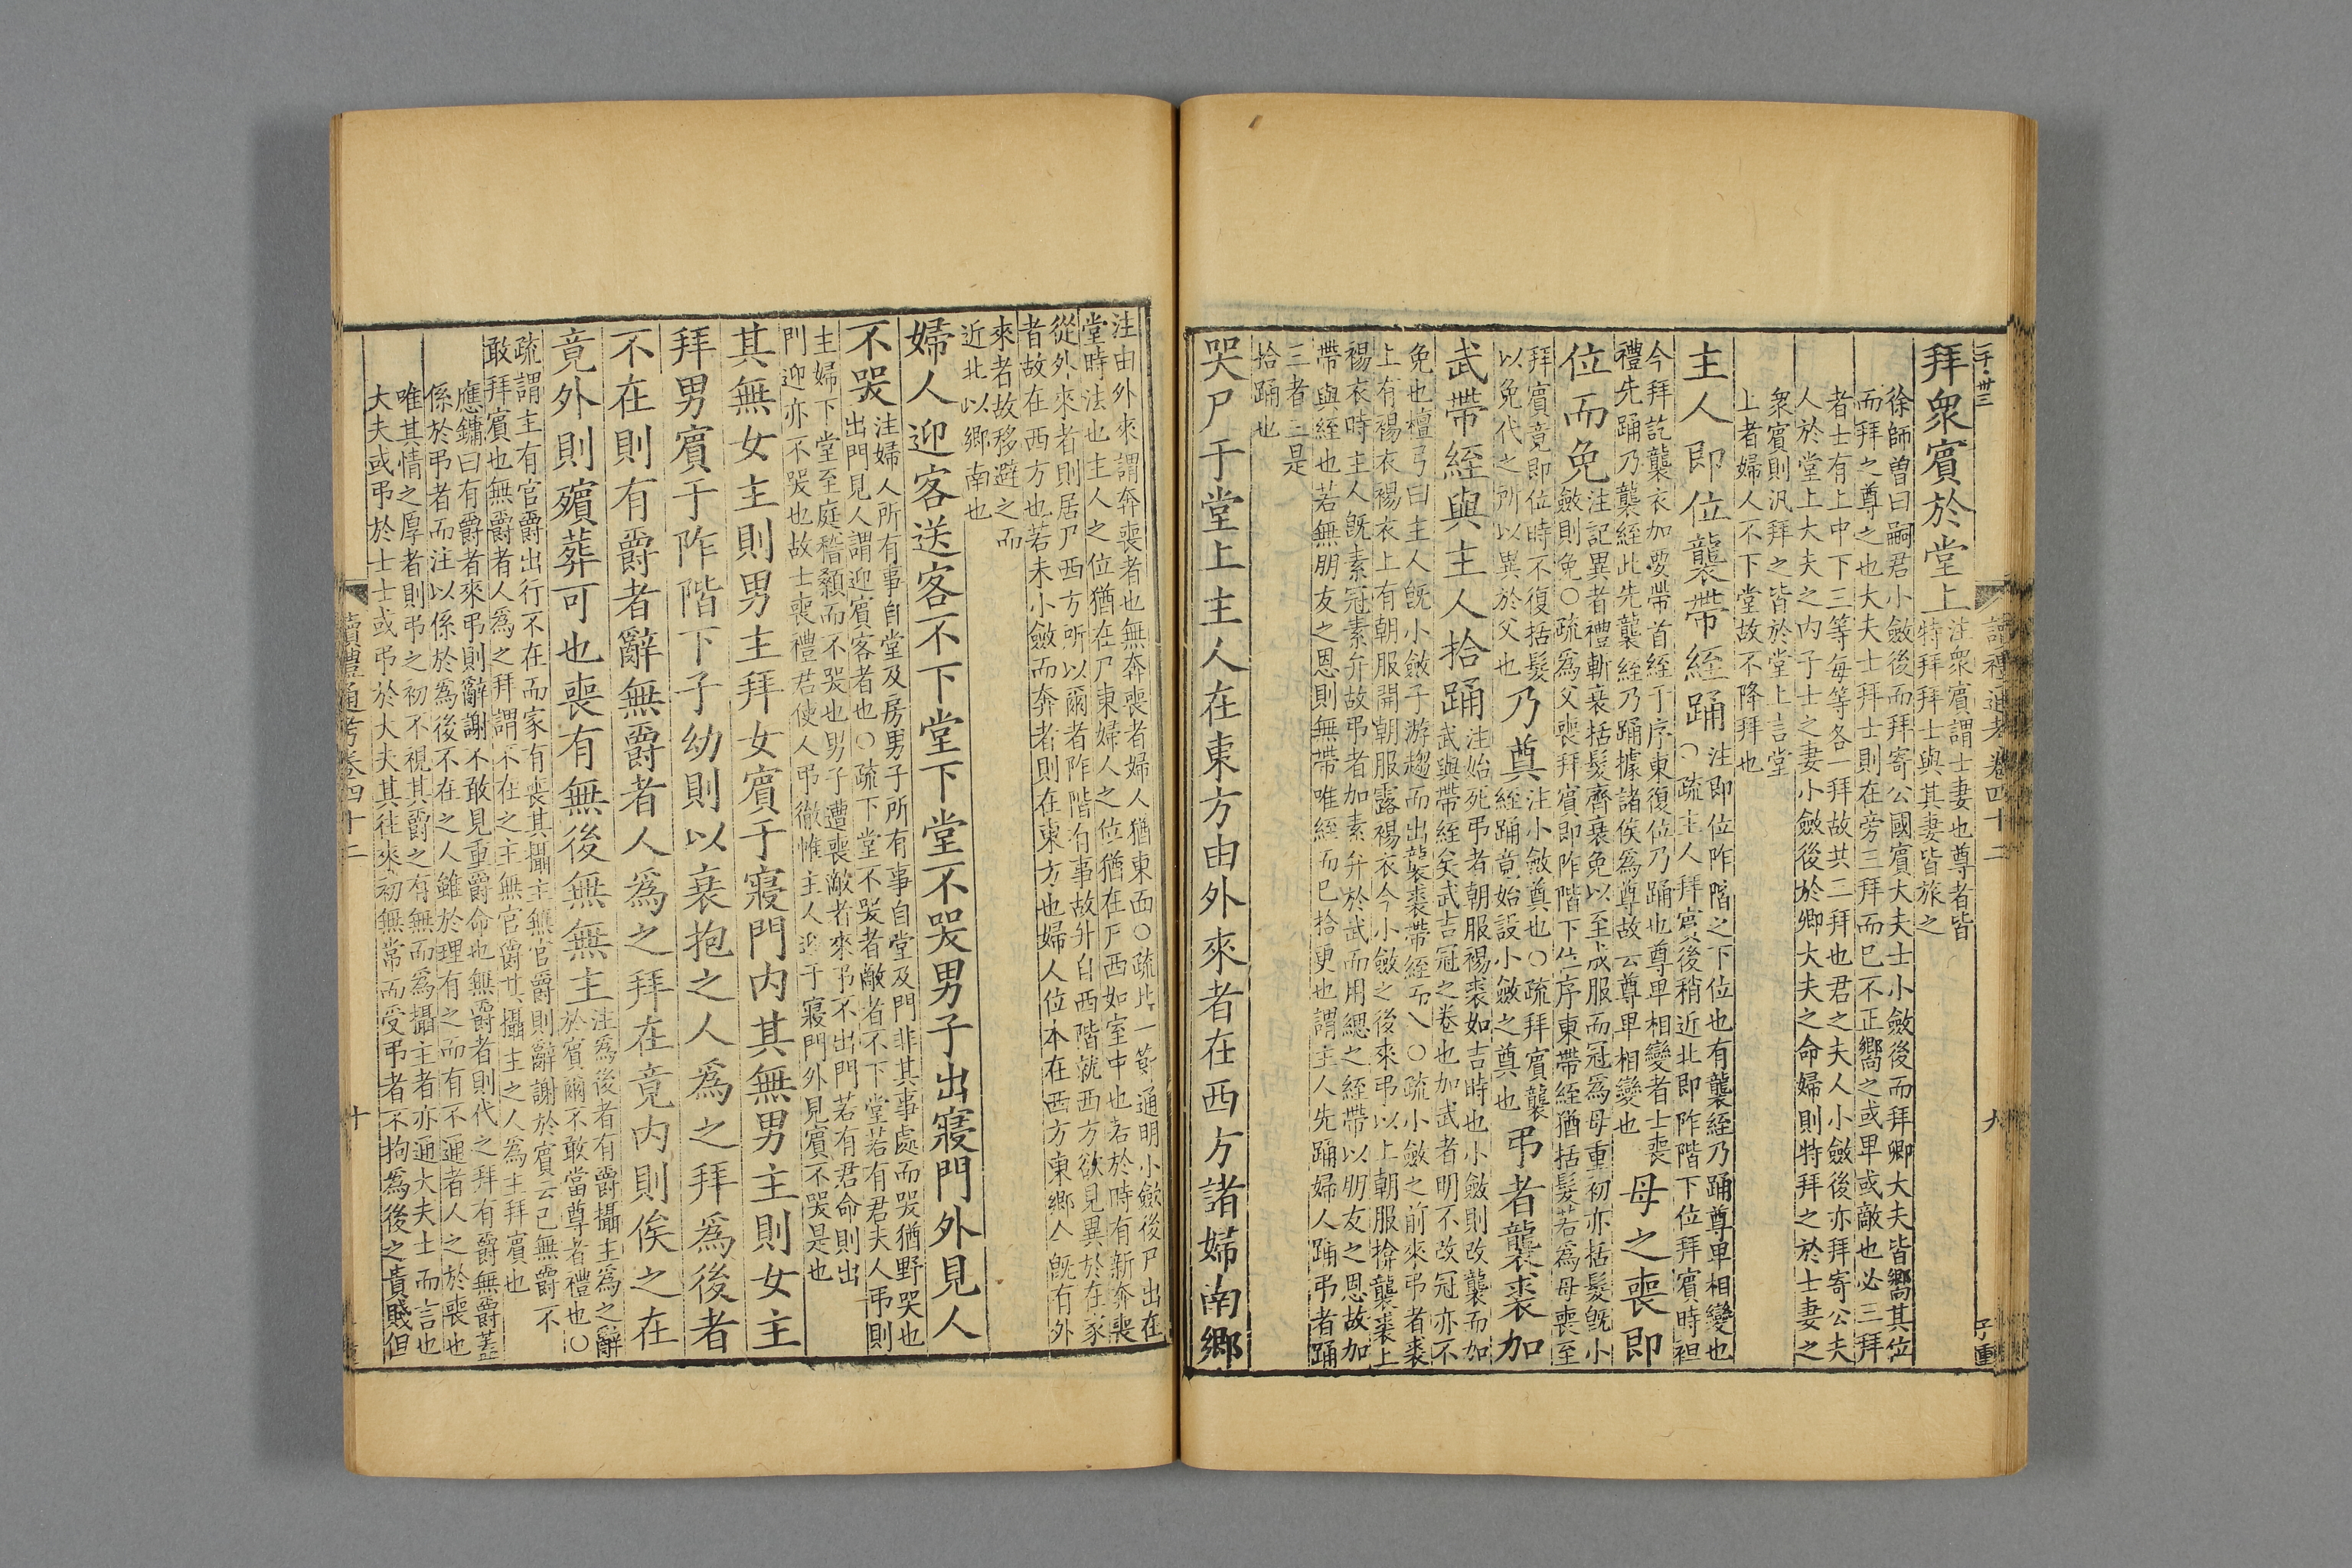 二千·卅三
讀禮通考卷四十二
九
子重
拜衆賓於堂上
注衆賓謂士妻也尊者皆
特拜拜士與其妻皆旅之
徐師曾曰嗣君小斂後而拜寄公國賓大夫士小斂後而拜卿大夫皆嚮其位
而拜之尊之也大夫士拜士則在旁三拜而已不正嚮之或卑或敵也必三拜
者士有上中下三等每等各一拜故共三拜也君之夫人小斂後亦拜寄公夫
人於堂上大夫之内子士之妻小斂後於卿大夫之命婦則特拜之於士妻之
衆賓則汎拜之皆於堂上言堂
上者婦人不下堂故不降拜也
主人即位襲帶絰踊
注即位阼階之下位也有襲絰乃踊尊卑相變也
○疏主人拜賓後稍近北即阼階下位拜賓時袒
今拜訖襲衣加要帶首絰于序東復位乃踊也尊卑相變者士喪
禮先踊乃襲絰此先襲絰乃踊據諸侯爲尊故云尊卑相變也
母之喪即
位而免
注記異者禮斬衰括髮齊衰免以至成服而冠爲母重初亦括髮旣小
斂則免○疏爲父喪拜賓即阼階下位序東帶絰猶括髮若爲母喪至
拜賓竟即位時不復括髮
以免代之所以異於父也
乃奠
注小斂奠也○疏拜賓襲
絰踊竟始設小斂之奠也
弔者襲裘加
武帶絰與主人拾踊
注始死弔者朝服裼裘如吉時也小斂則改襲而加
武與帶絰矣武吉冠之卷也加武者明不改冠亦不
免也檀弓曰主人旣小斂子游趨而出襲裘帶絰而入○疏小斂之前來弔者裘
上有裼衣裼衣上有朝服開朝服露裼衣今小斂之後來弔以上朝服揜襲裘上
裼衣時主人旣素冠素弁故弔者加素弁於武而用緦之絰帶以朋友之恩故加
帶與絰也若無朋友之恩則無帶唯絰而已拾更也謂主人先踊婦人踊弔者踊
三者三是
拾踊也
哭尸于堂上主人在東方由外來者在西方諸婦南鄉
注由外來謂奔喪者也無奔喪者婦人猶東面○疏此一節通明小斂後尸出在
堂時法也主人之位猶在尸東婦人之位猶在尸西如室中也若於時有新奔喪
從外來者則居尸西方所以爾者阼階有事故升自西階就西方欲見異於在家
者故在西方也若未小斂而奔者則在東方也婦人位本在西方東鄉今旣有外
來者故移避之而
近北以鄉南也
婦人迎客送客不下堂下堂不哭男子出寢門外見人
不哭
注婦人所有事自堂及房男子所有事自堂及門非其事處而哭猶野哭也
出門見人謂迎賓客者也○疏下堂不哭者敵者不下堂若有君夫人弔則
主婦下堂至庭稽顙而不哭也男子遭喪敵者來弔不出門若有君命則出
門迎亦不哭也故士喪禮君使人弔徹帷主人迎于寢門外見賓不哭是也
其無女主則男主拜女賓于寢門内其無男主則女主
拜男賓于阼階下子幼則以衰抱之人爲之拜爲後者
不在則有爵者辭無爵者人爲之拜在竟内則俟之在
竟外則殯葬可也喪有無後無無主
注爲後者有爵攝主爲之辭
於賓爾不敢當尊者禮也○
疏謂主有官爵出行不在而家有喪其攝主無官爵則辭謝於賓云已無爵不
敢拜賓也無爵者人爲之拜謂不在之主無官爵其攝主之人爲主拜賓也
應鏞曰有爵者來弔則辭謝不敢見重爵命也無爵者則代之拜有爵無爵蓋
係於弔者而注以係於爲後不在之人雖於理有之而有不通者人之於喪也
唯其情之厚者則弔之初不視其爵之有無而爲攝主者亦通大夫士而言也
大夫或弔於士士或弔於大夫其往來初無常而受弔者不拘爲後之貴賤但
讀禮通考卷四十二
十